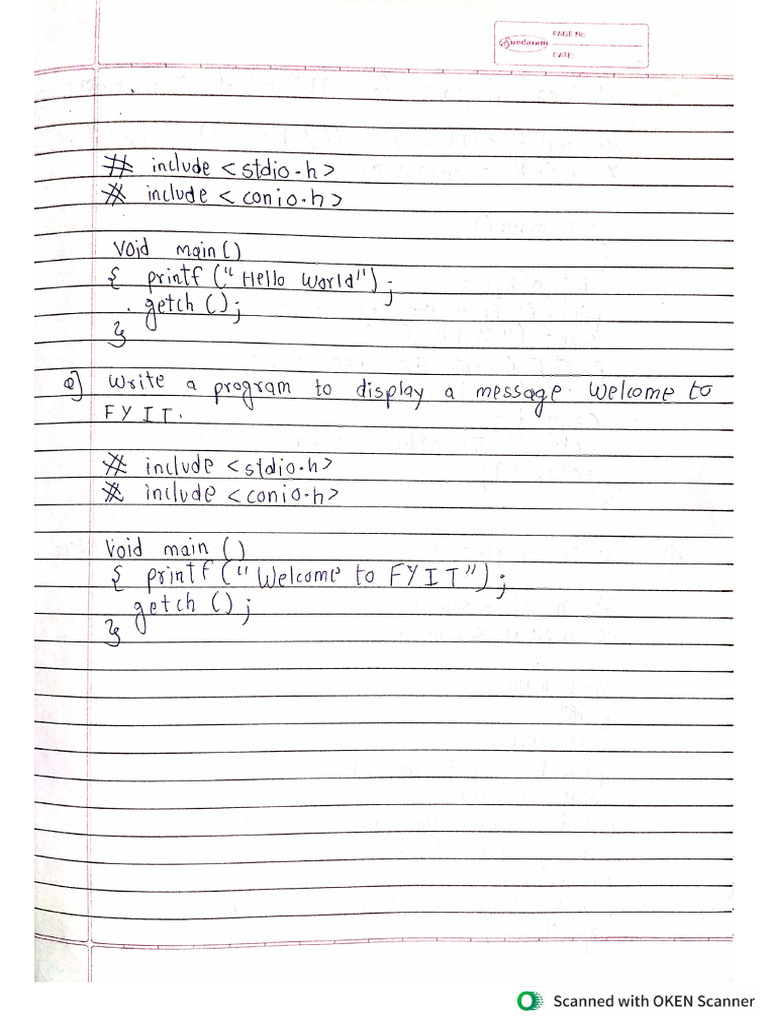 Sundaram
PAGE No.
DATE:
# include <stdio.h>
# include <conio.h>
void main()
{ printf ("Hello World");
getch ();
}
Q] Write a program to display a message Welcome to
FYIT.
# include <stdio.h>
# include <conio.h>
void main ()
{ printf ("Welcome to FYIT");
getch ();
}
Scanned with OKEN Scanner